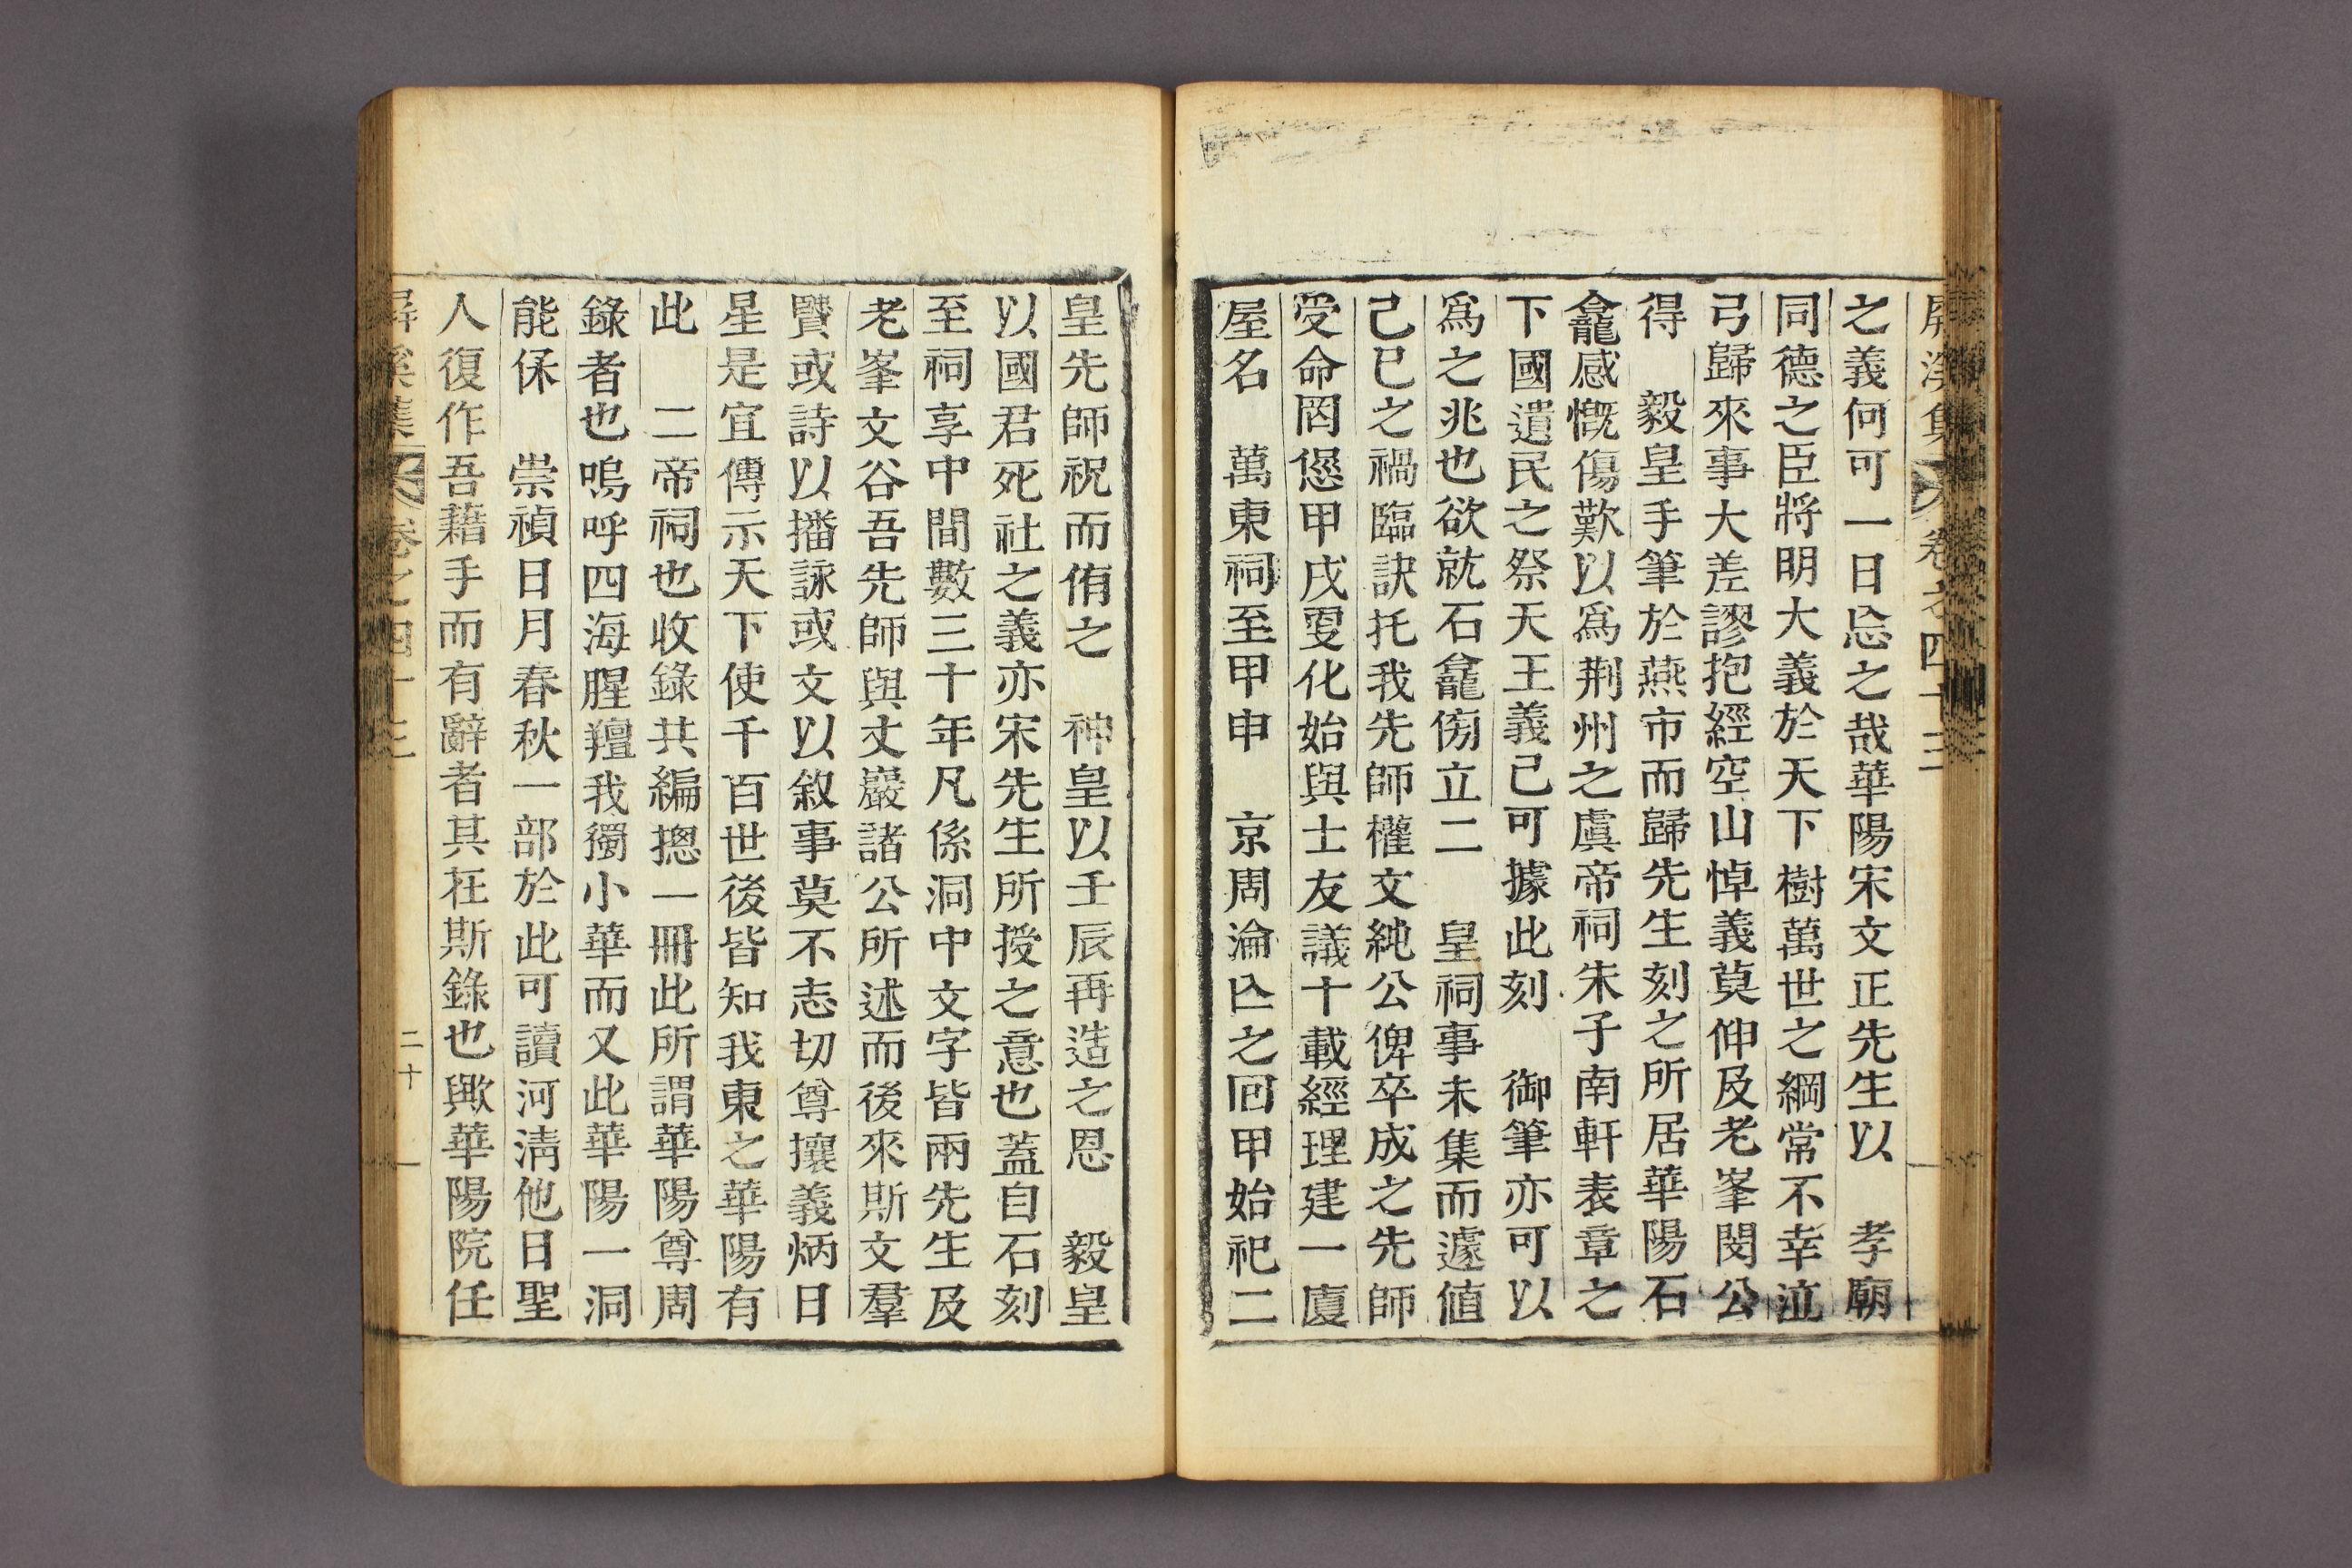 屛溪集 卷之四十三
之義何可一日忘之哉華陽宋文正先生以 孝廟
同德之臣將明大義於天下樹萬世之綱常不幸泣
弓歸來事大差謬抱經空山悼義莫伸及老峯閔公
得 毅皇手筆於燕市而歸先生刻之所居華陽石
龕感慨傷歎以爲荆州之虞帝祠朱子南軒表章之
下國遺民之祭天王義已可據此刻 御筆亦可以
爲之兆也欲就石龕傍立二 皇祠事未集而遽値
己巳之禍臨訣托我先師權文純公俾卒成之先師
受命罔愆甲戌更化始與士友議十載經理建一廈
屋名 萬東祠至甲申 京周淪亾之回甲始祀二
皇先師祝而侑之 神皇以壬辰再造之恩 毅皇
以國君死社之義亦宋先生所授之意也蓋自石刻
至祠享中間數三十年凡係洞中文字皆兩先生及
老峯文谷吾先師與丈巖諸公所述而後來斯文羣
賢或詩以播詠或文以敘事莫不志切尊攘義炳日
星是宜傳示天下使千百世後皆知我東之華陽有
此 二帝祠也收錄共編摠一冊此所謂華陽尊周
錄者也嗚呼四海腥羶我獨小華而又此華陽一洞
能保 崇禎日月春秋一部於此可讀河淸他日聖
人復作吾藉手而有辭者其在斯錄也歟華陽院任
屛溪集 卷之四十三 二十一